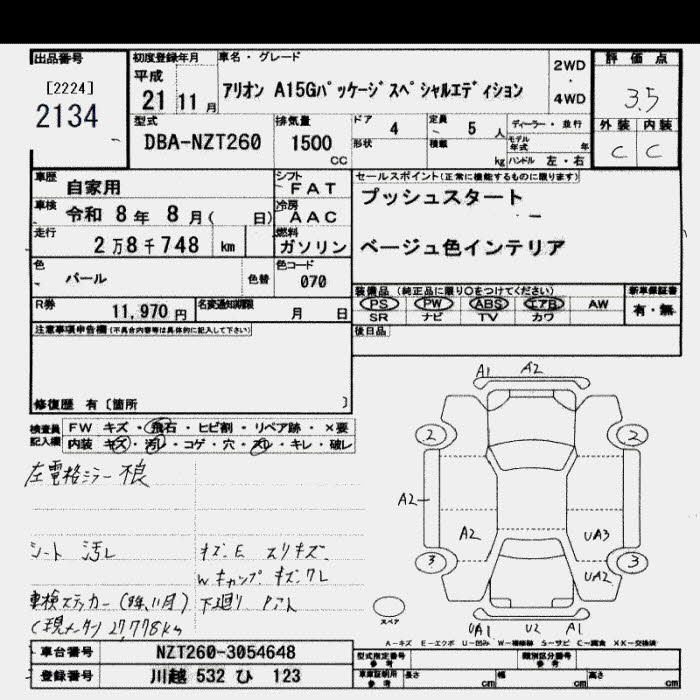 出品番号
[2224]
2134
初度登録年月
平成
21 11月
車名・グレード
アリオン A15Gパッケージスペシャルエディション
2WD
・
4WD
評価点
3.5
外装 内装
C C
型式
DBA-NZT260
排気量
1500
CC
ドア
4
形状
定員
5 人
積載
kg
ディーラー・並行
モデル年式 年
ハンドル 左・右
車歴
自家用
シフト
FAT
車検
令和 8年 8月( 日)
冷房
AAC
走行
2万8千748 km
燃料
ガソリン
色
パール
色替
色コード
070
R券
11,970 円
名変通知期限
月 日
セールスポイント(正常に機能するものに限ります)
プッシュスタート
ベージュ色インテリア
装備品 (純正品に限り○をつけてください)
PS PW ABS エアB AW
SR ナビ TV カワ
新車保証書
有・無
後日品
注意事項申告欄(不具合内容等は具体的に記入して下さい)
修復歴 有〔箇所 〕
検査員記入欄
FW キズ・飛石・ヒビ割・リペア跡・×要
内装 キズ・汚レ・コゲ・穴・スレ・キレ・破レ
左電格ミラー不良
シート 汚レ
キズ.E スリキズ.
Wキャンプ キズ.ワレ
車検ステッカー(8年.11月) 下廻り Pアト
(現メータ) 27,778km
A1 A2
2 2
A2
A2 UA3
3 3
UA2
UA1 U2 A1
スペア
A-キズ E-エクボ U-凹み W-補修跡 S-サビ C-腐食 XX-交換済
車台番号
NZT260-3054648
登録番号
川越 532 ひ 123
型式指定番号
参考
類別区分番号
参考
車庫証明用
参考
長さ cm 幅 cm 高さ cm